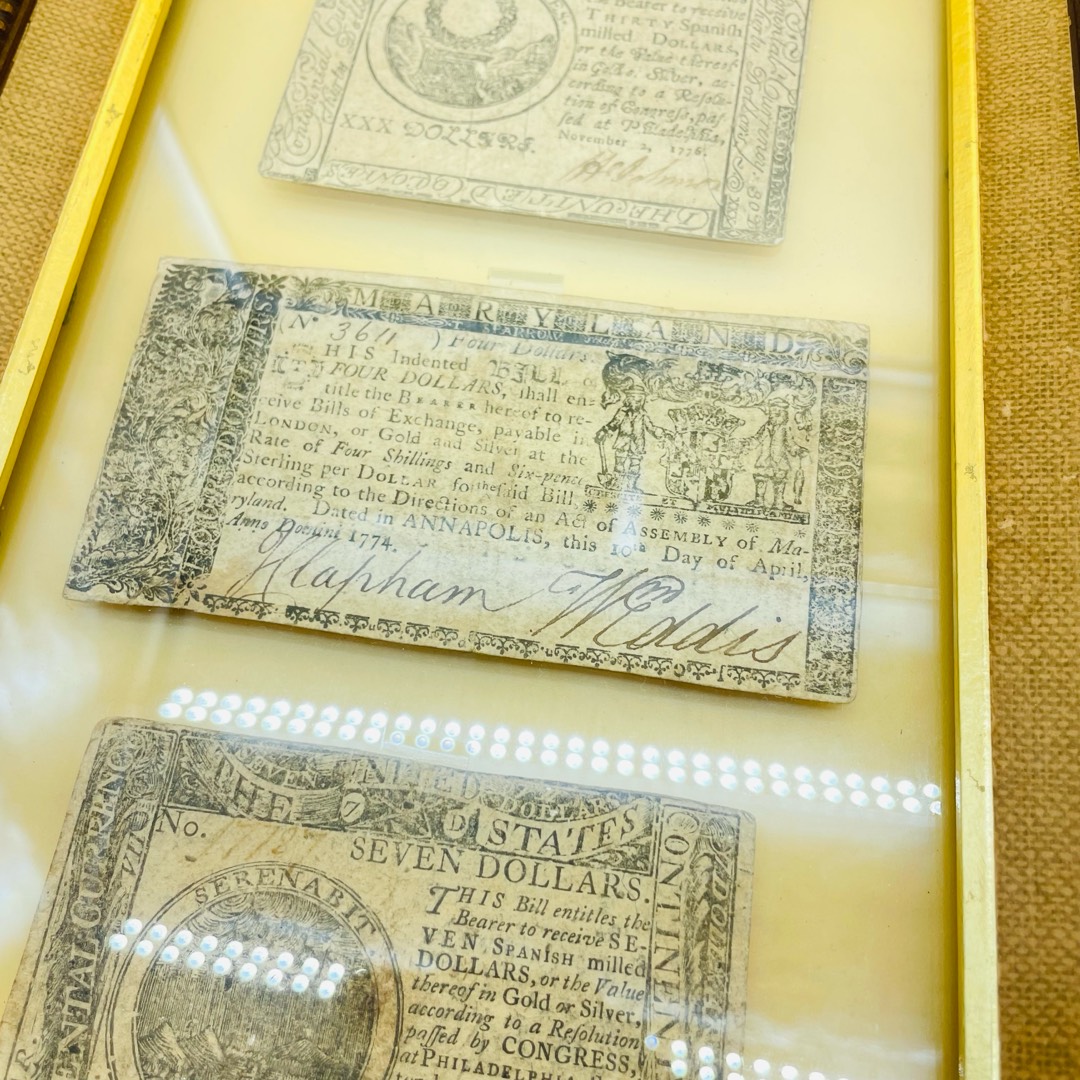 the Bearer to receive
THIRTY Spanish
milled DOLLARS,
or the Value thereof
in Gold or Silver, ac-
cording to a Reſolu-
tion of Congreſs, paſ
ſed at Philadelphia,
November 2, 1776.
XXX DOLLARS.
THE UNITED COLONIES
MARYLAND
No 3611 ) Four Dollars
THIS Indented BILL of
FOUR DOLLARS, ſhall en-
title the BEARER hereof to re-
ceive Bills of Exchange, payable in
LONDON, or Gold and Silver at the
Rate of Four Shillings and Six-pence
Sterling per DOLLAR for the ſaid Bill,
according to the Directions of an Act of ASSEMBLY of Ma-
ryland. Dated in ANNAPOLIS, this 10th Day of April,
Anno Domini 1774.
Clapham W Eddis
THE UNITED STATES
SEVEN DOLLARS
No.
SEVEN DOLLARS.
SERENABIT
THIS Bill entitles the
Bearer to receive SE-
VEN SPANISH milled
DOLLARS, or the Value
thereof in Gold or Silver,
according to a Reſolution
paſſed by CONGRESS,
at PHILADELPHIA
CONTINEN